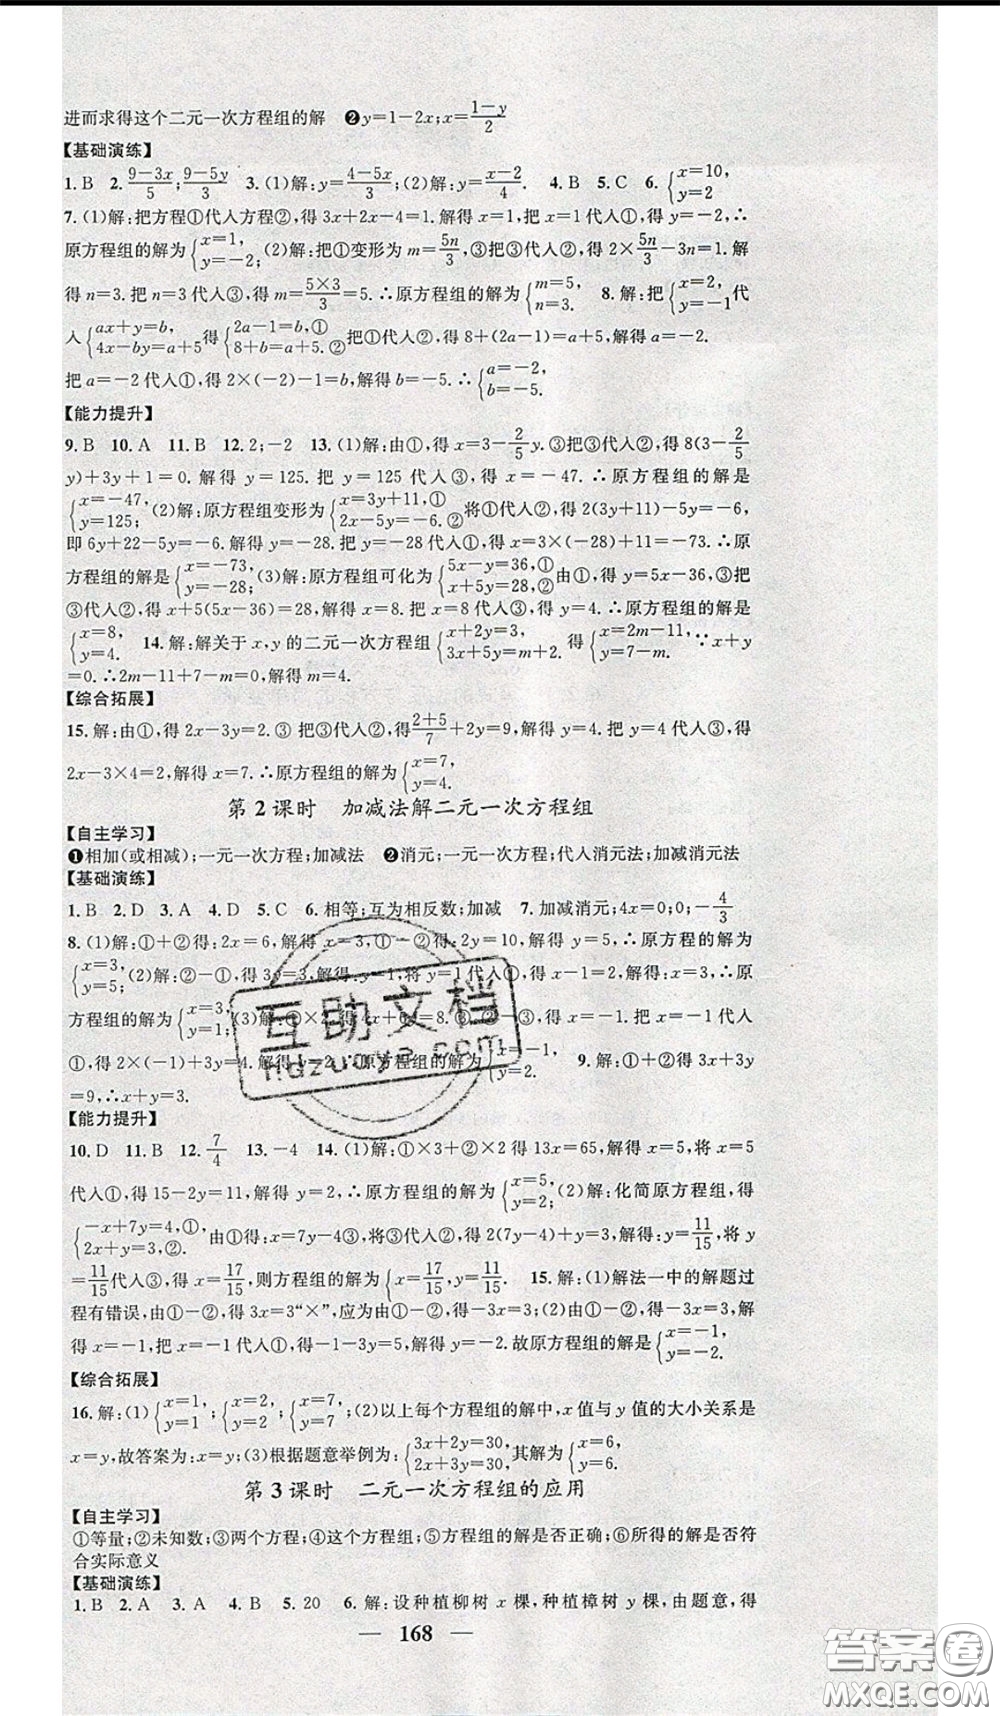 进而求得这个二元一次方程组的解 ❷y=1-2x;x=(1-y)/2
【基础演练】
1. B 2. (9-3x)/5;(9-5y)/3 3. (1)解:y=(4-5x)/3;(2)解:y=(x-2)/4. 4. B 5. C 6. {x=10, y=2
7. (1)解:把方程①代人方程②,得 3x+2x-4=1. 解得 x=1,把 x=1 代人①,得 y=-2,∴
原方程组的解为{x=1, y=-2;(2)解:把①变形为 m=5n/3,③把③代人②,得 2×5n/3-3n=1. 解
得 n=3. 把 n=3 代人③,得 m=(5×3)/3=5. ∴原方程组的解为{m=5, n=3. 8. 解:把{x=2, y=-1代
人{ax+y=b, 4x-by=a+5得{2a-1=b,① 8+b=a+5.②把①代人②,得 8+(2a-1)=a+5,解得 a=-2.
把 a=-2 代人①,得 2×(-2)-1=b,解得 b=-5. ∴{a=-2, b=-5.
【能力提升】
9. B 10. A 11. B 12. 2;-2 13. (1)解:由①,得 x=3-2/5y. ③把③代人②,得 8(3-2/5
y)+3y+1=0. 解得 y=125. 把 y=125 代人③,得 x=-47. ∴原方程组的解是
{x=-47, y=125;(2)解:原方程组变形为{x=3y+11,① 2x-5y=-6.②将①代人②,得 2(3y+11)-5y=-6,
即 6y+22-5y=-6. 解得 y=-28. 把 y=-28 代人①,得 x=3×(-28)+11=-73. ∴原
方程组的解是{x=-73, y=-28;(3)解:原方程组可化为{5x-y=36,① x+5y=28,②由①,得 y=5x-36. ③把
③代人②,得 x+5(5x-36)=28,解得 x=8. 把 x=8 代人③,得 y=4. ∴原方程组的解是
{x=8, y=4. 14. 解:解关于 x,y 的二元一次方程组{x+2y=3, 3x+5y=m+2. 得{x=2m-11, y=7-m. ∵x+y
=0. ∴2m-11+7-m=0. 解得 m=4.
【综合拓展】
15. 解:由①,得 2x-3y=2. ③ 把③代人②,得(2+5)/7+2y=9,解得 y=4. 把 y=4 代人③,得
2x-3×4=2,解得 x=7. ∴原方程组的解为{x=7, y=4.
第 2 课时 加减法解二元一次方程组
【自主学习】
❶相加(或相减);一元一次方程;加减法 ❷消元;一元一次方程;代人消元法;加减消元法
【基础演练】
1. B 2. D 3. A 4. D 5. C 6. 相等;互为相反数;加减 7. 加减消元;4x=0;0;-4/3
8. (1)解:①+②得:2x=6,解得:x=3,①-②得:2y=10,解得 y=5,∴原方程的解为
{x=3, y=5;(2)解:②-①,得 3y=3,解得:y=1,将 y=1 代人①,得 x-1=2,解得:x=3,∴原
方程组的解为{x=3, y=1;(3)解:①×2,得 4x+6y=8. ③ ③-②,得 x=-1. 把 x=-1 代人
①,得 2×(-1)+3y=4,解得 y=2. ∴原方程组的解为{x=-1, y=2. 9. 解:①+②得 3x+3y
=9,∴x+y=3.
【能力提升】
10. D 11. B 12. 7/4 13. -4 14. (1)解:①×3+②×2 得 13x=65,解得 x=5,将 x=5
代人①,得 15-2y=11,解得 y=2,∴原方程组的解为{x=5, y=2;(2)解:化简原方程组,得
{-x+7y=4,①, 2x+y=3,②.由①得:x=7y-4③,将③代人②,得 2(7y-4)+y=3,解得:y=11/15,将 y
=11/15代人③,得 x=17/15,则方程组的解为{x=17/15,y=11/15. 15. 解:(1)解法一中的解题过
程有错误,由①-②,得 3x=3“×”,应为由①-②,得-3x=3;(2)由①-②,得-3x=3,解
得 x=-1,把 x=-1 代人①,得-1-3y=5,解得 y=-2. 故原方程组的解是{x=-1, y=-2.
【综合拓展】
16. 解:(1){x=1, y=1,{x=2, y=2,{x=7, y=7;(2)以上每个方程组的解中,x 值与 y 值的大小关系是
x=y,故答案为:x=y;(3)根据题意举例为:{3x+2y=30, 2x+3y=30,其解为{x=6, y=6.
第 3 课时 二元一次方程组的应用
【自主学习】
①等量;②未知数;③两个方程;④这个方程组;⑤方程组的解是否正确;⑥所得的解是否符
合实际意义
【基础演练】
1. B 2. A 3. A 4. B 5. 20 6. 解:设种植柳树 x 棵,种植樟树 y 棵,由题意,得
— 168 —
互助文档
Hdzuoye.com
答案卷
MXQE.COM